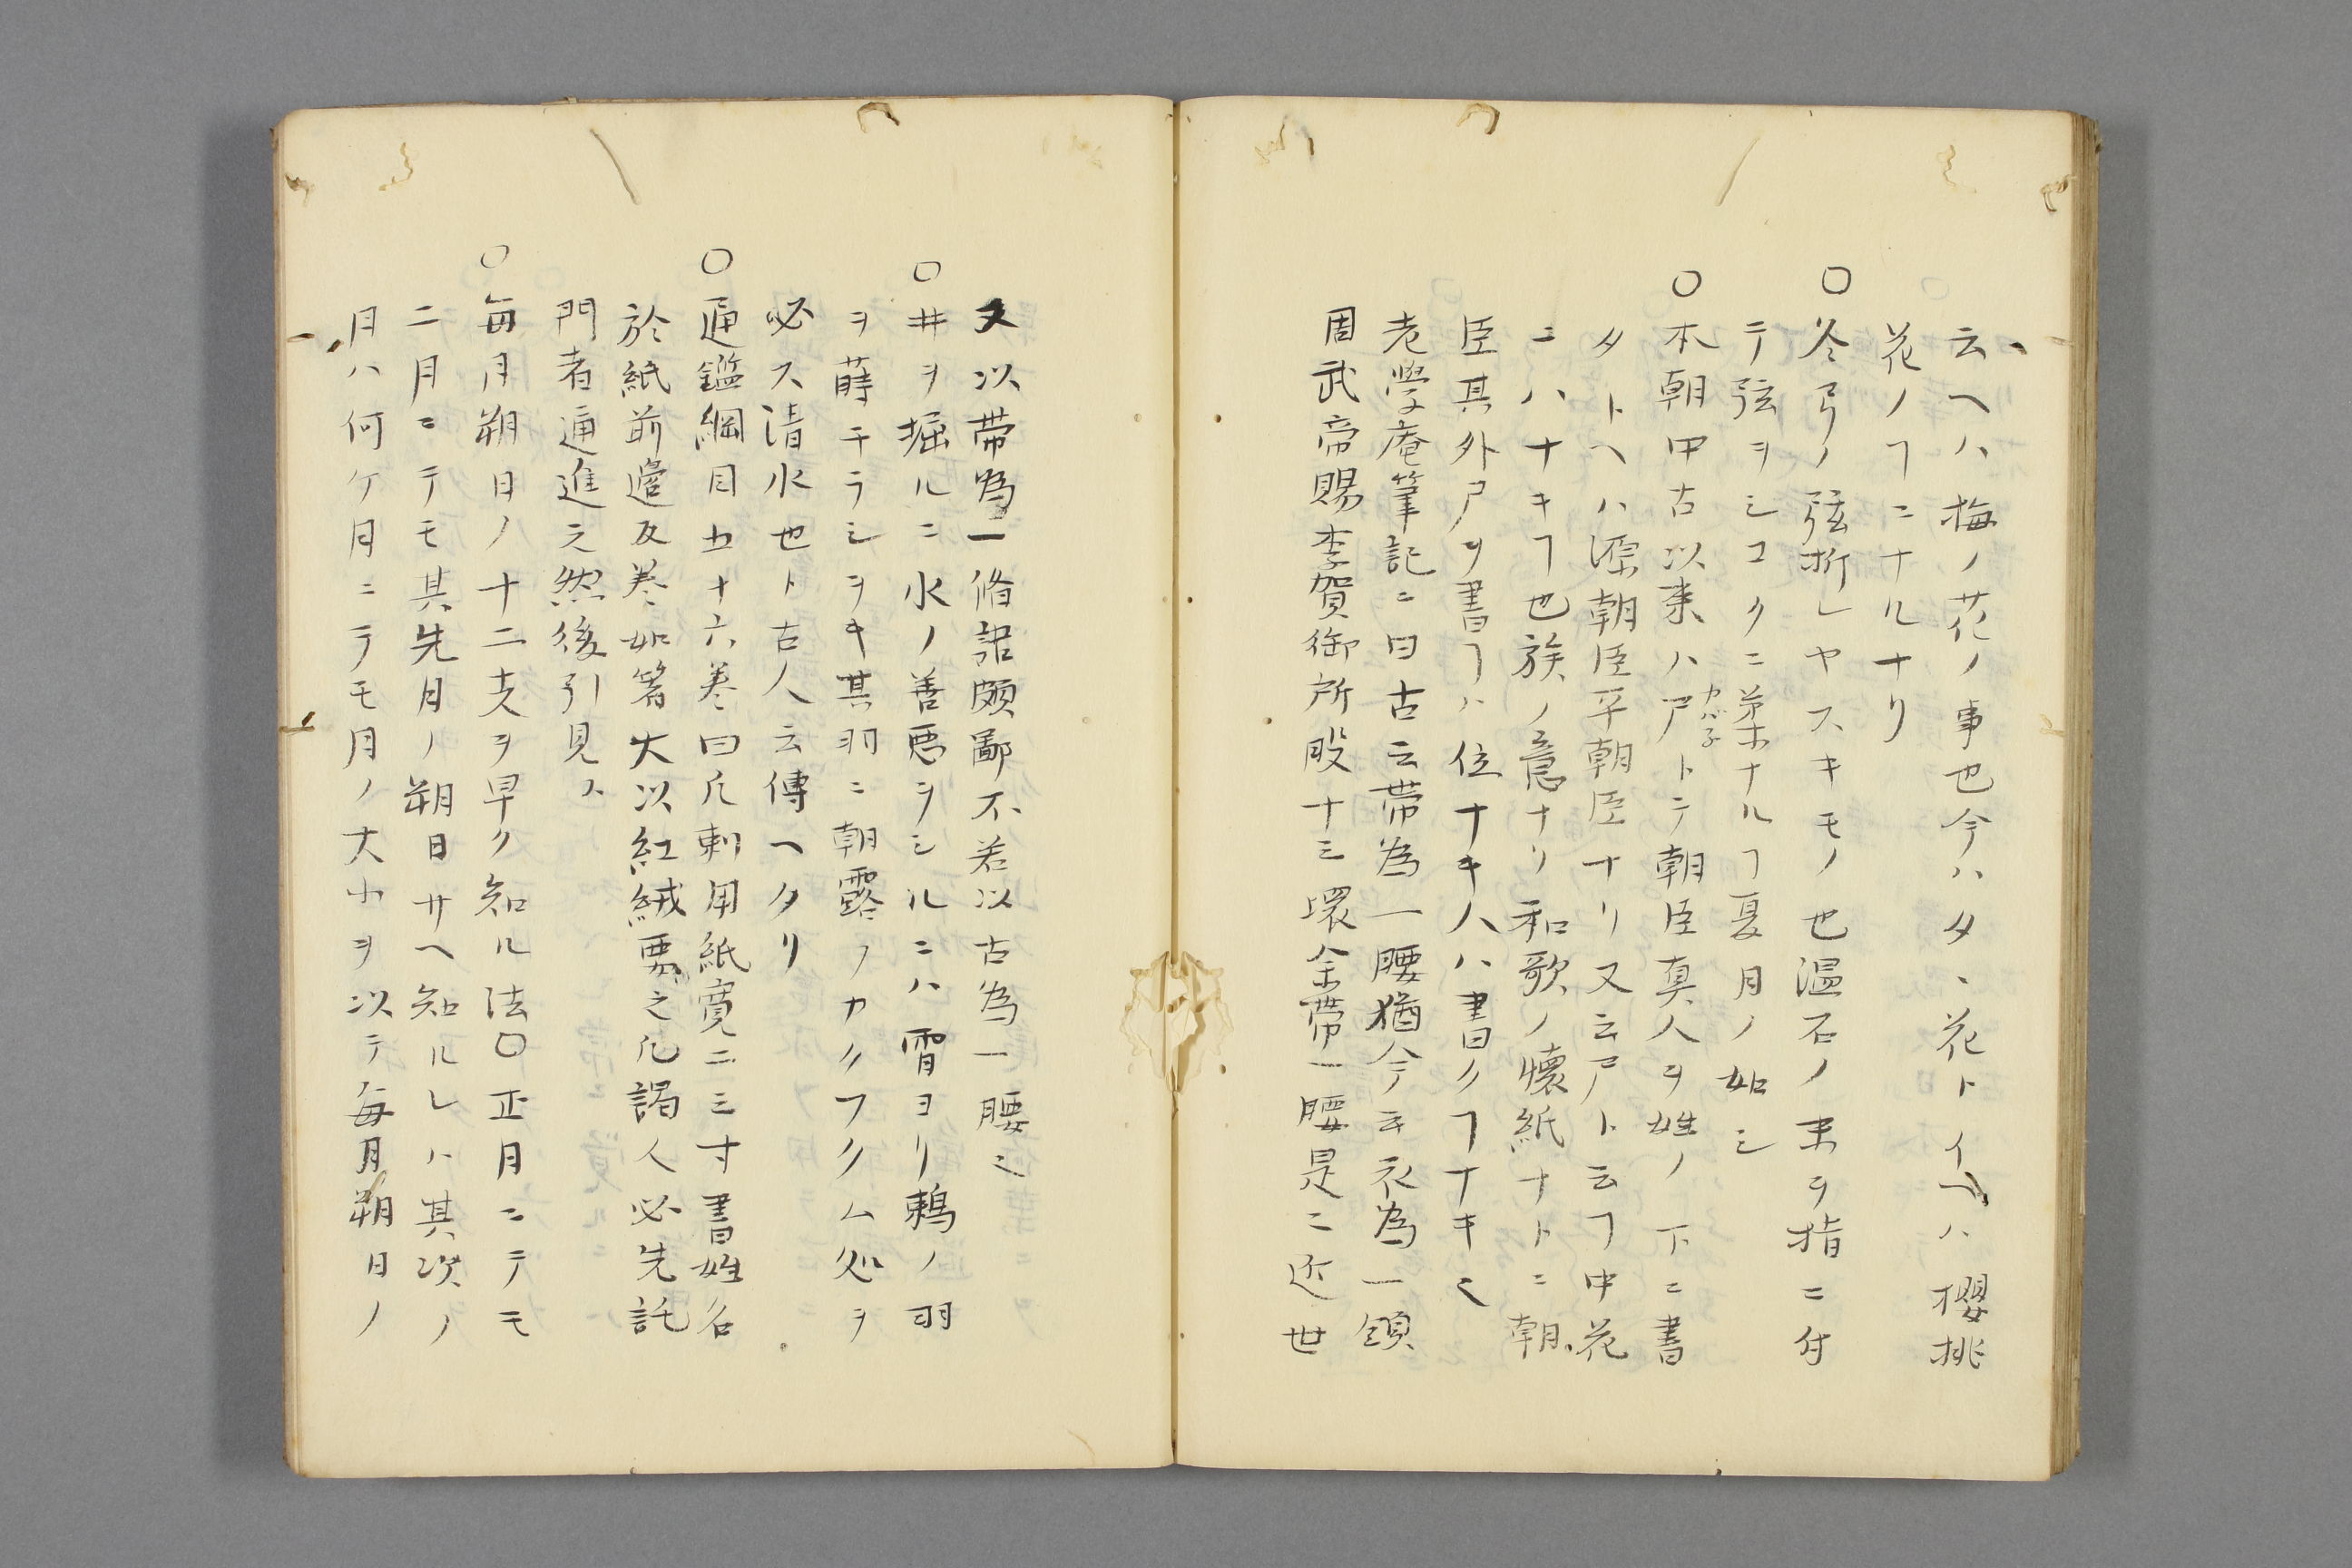 云ヘハ梅ノ花ノ事也今ハタヽ花トイヘハ櫻桃
花ノヿニナルナリ
○冬弓ノ弦折レヤスキモノ也温石ノ末ヲ指ニ付
テ弦ヲシコクニ柔ナルヿ夏月ノ如シ
○本朝中古以来ハ尸トテ朝臣真人ヲ姓ノ下ニ書
カバネ
タトヘハ源朝臣平朝臣ナリ又云尸ト云ヿ中花
ニハナキヿ也族ノ意ナリ和歌ノ懐紙ナトニ朝
臣其外尸ヲ書ヿハ位ナキ人ハ書クヿナキ也
老學庵筆記ニ曰古云帯為一腰猶今云衣為一領
周武帝賜李賢御所服十三環金帯一腰是ニ近世
又以帯為一條語頗鄙不若以古為一腰也
○井ヲ掘ルニ水ノ善悪ヲシルニハ宵ヨリ鶏ノ羽
ヲ蒔チラシヲキ其羽ニ朝露ノカクフクム処ヲ
必ス清水也ト古人云傳ヘタリ
○通鑑綱目五十六巻曰凡刺用紙寛二三寸書姓名
於紙前邉反巻如箸大以紅絨要之凡謁人必先託
門者通進之然後引見ス
○毎月朔日ノ十二支ヲ早ク知ル法○正月ニテモ
二月ニテモ其先月ノ朔日サヘ知ルレハ其次ノ
月ハ何ケ月ニテモ月ノ大小ヲ以テ毎月朔日ノ